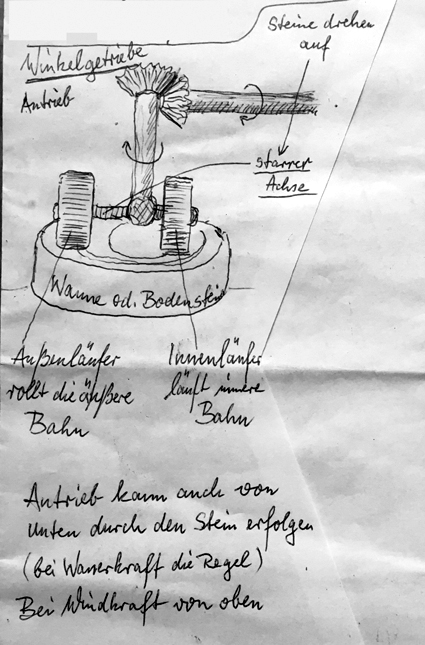 Steine drehen
auf
Winkelgetriebe
Antrieb
starrer
Achse
Wanne od. Bodenstein
Außenläufer
rollt die äußere
Bahn
Innenläufer
läuft innere
Bahn
Antrieb kann auch von
unten durch den Stein erfolgen
(bei Wasserkraft die Regel)
Bei Windkraft von oben